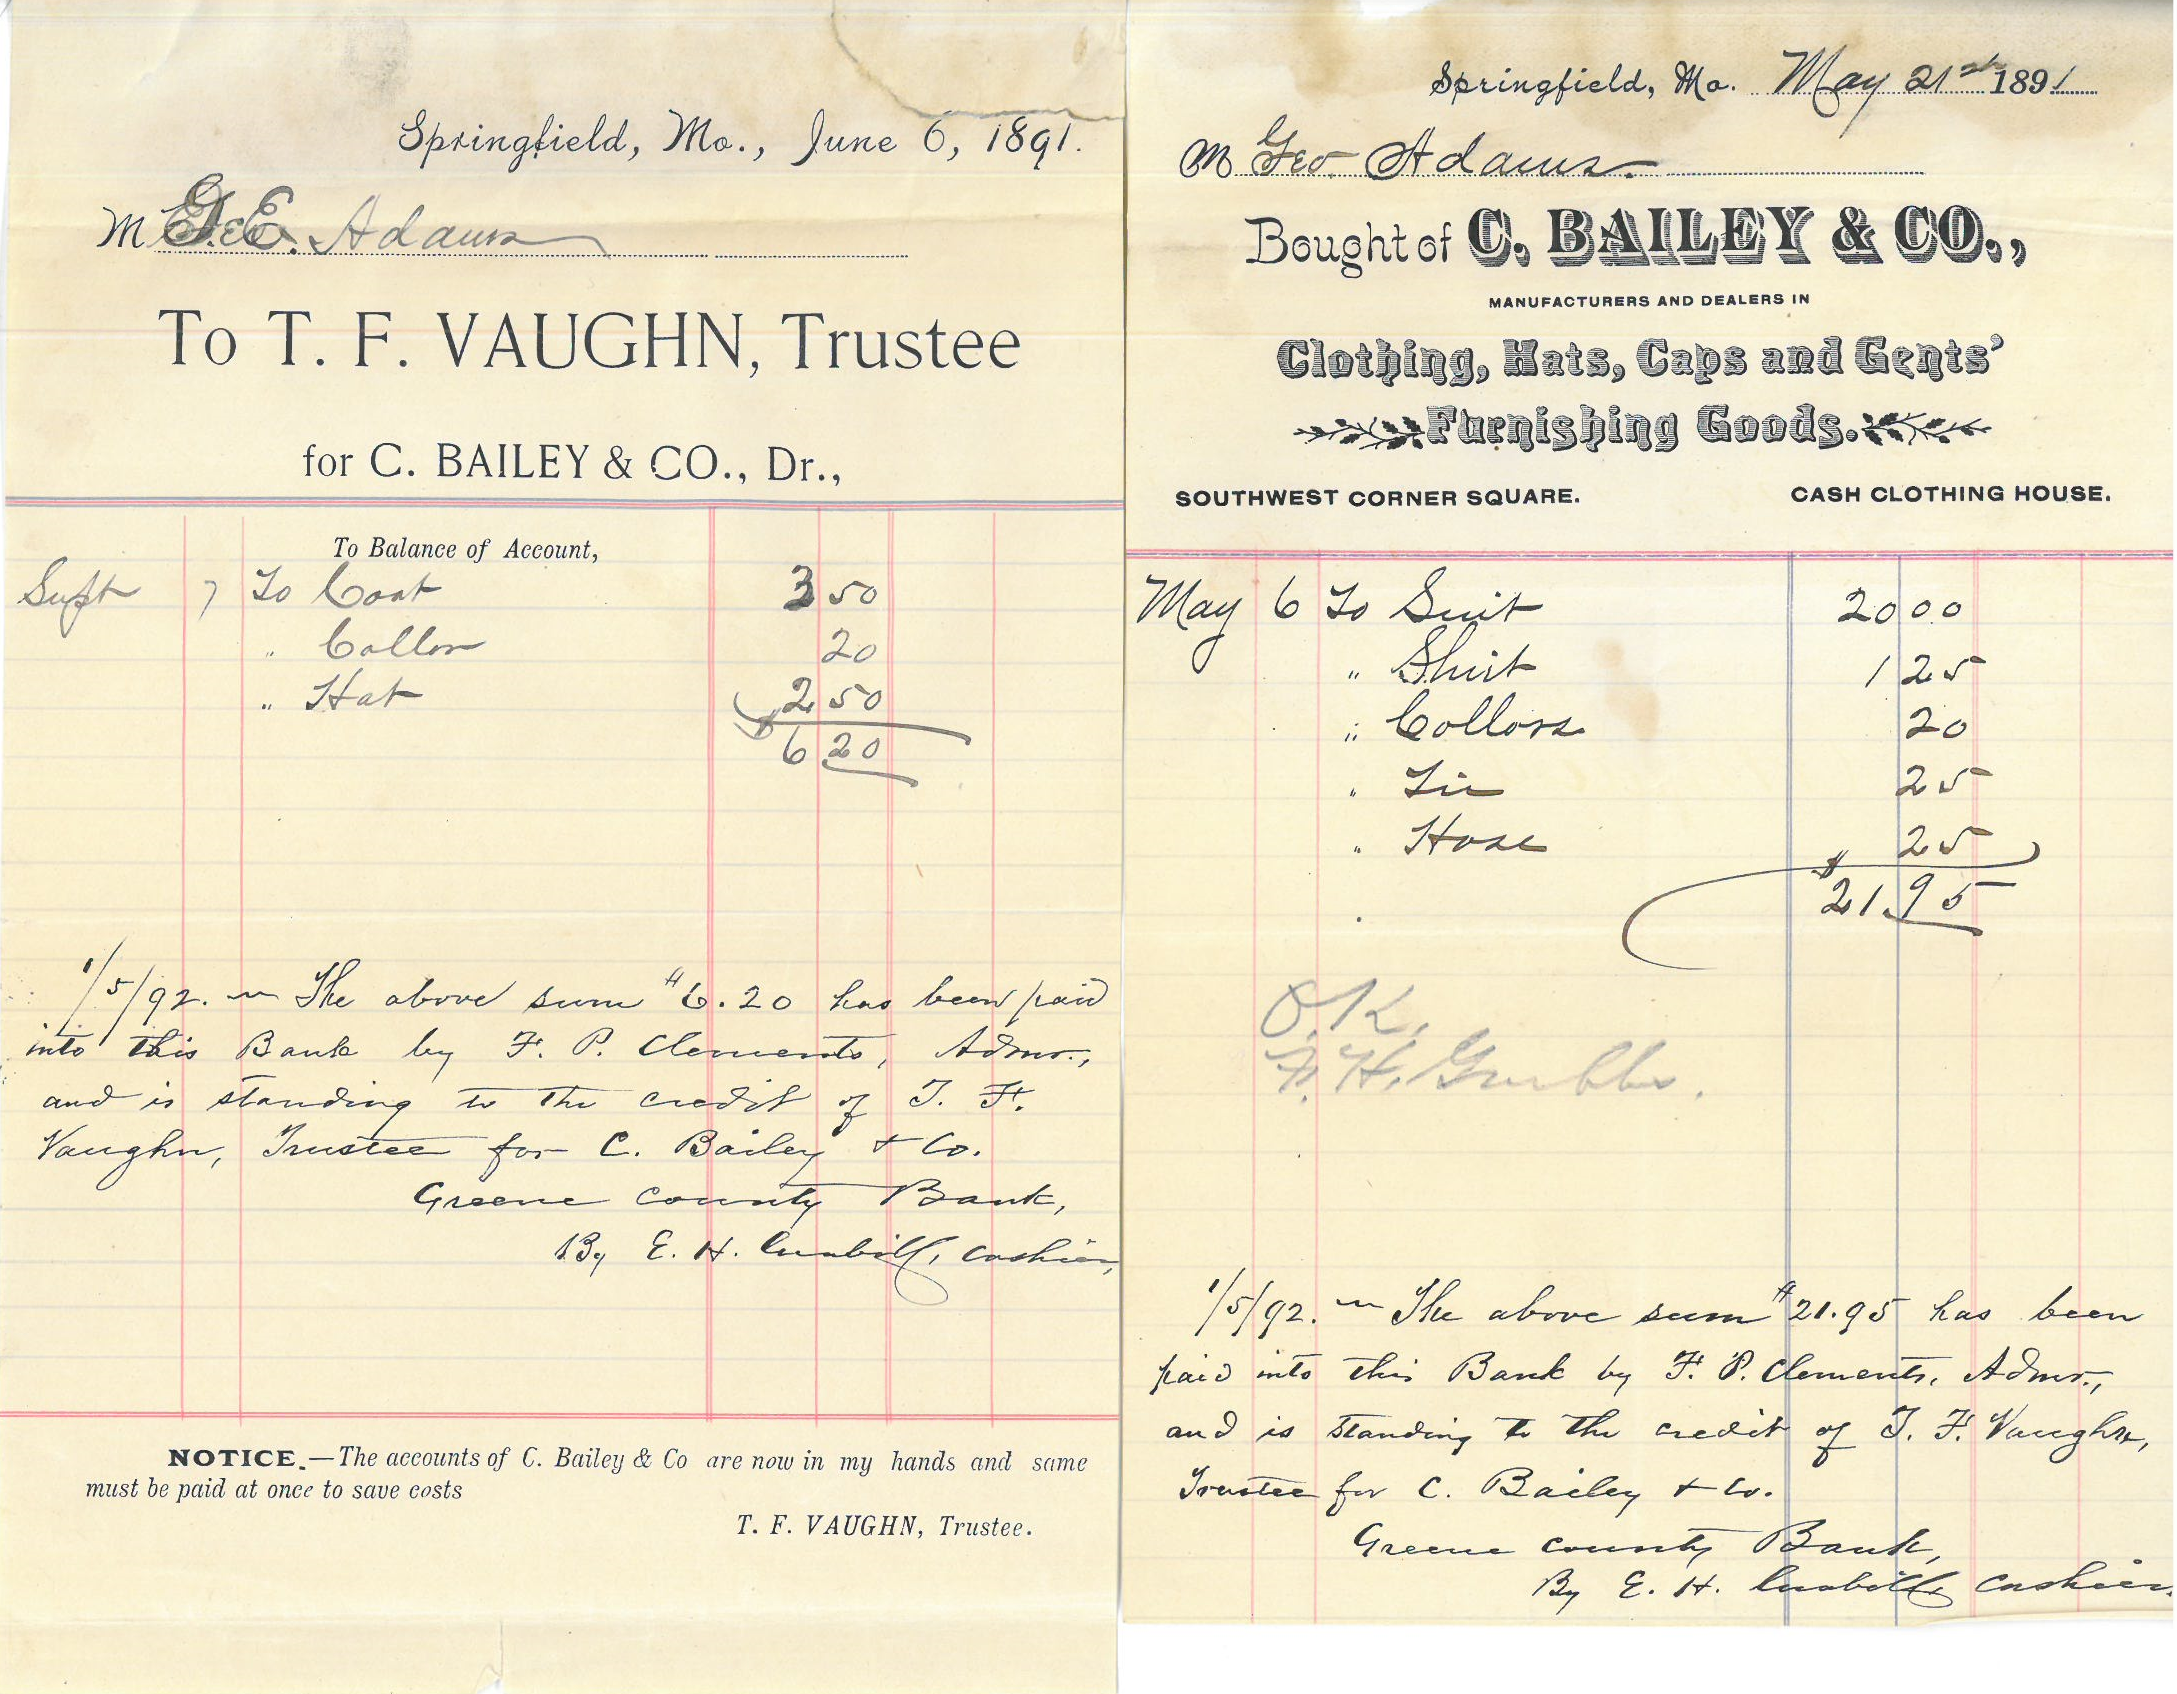 Springfield, Mo., June 6, 1891.
M Geo. Adams
To T. F. VAUGHN, Trustee
for C. BAILEY & CO., Dr.,
To Balance of Account,
Sept 7 To Coat 3 50
" Collar 20
" Hat 2 50
$ 6 20
1/5/92. — The above sum $6.20 has been paid
into this Bank by F. P. Clements, Admr.,
and is standing to the credit of T. F.
Vaughn, Trustee for C. Bailey & Co.
Greene County Bank,
By E. H. Cashier,
NOTICE.—The accounts of C. Bailey & Co are now in my hands and same
must be paid at once to save costs
T. F. VAUGHN, Trustee.
Springfield, Mo. May 21st 1891
M Geo. Adams.
Bought of C. BAILEY & CO.,
MANUFACTURERS AND DEALERS IN
Clothing, Hats, Caps and Gents'
Furnishing Goods.
SOUTHWEST CORNER SQUARE. CASH CLOTHING HOUSE.
May 6 To Suit 20 00
" Shirt 1 25
" Collars 20
" Tie 25
" Hose 25
$ 21.95
O.K.
F. H. Grubbs.
1/5/92. — The above sum $21.95 has been
paid into this Bank by F. P. Clements, Admr.,
and is standing to the credit of T. F. Vaughn,
Trustee for C. Bailey & Co.
Greene County Bank,
By E. H. Cashier.